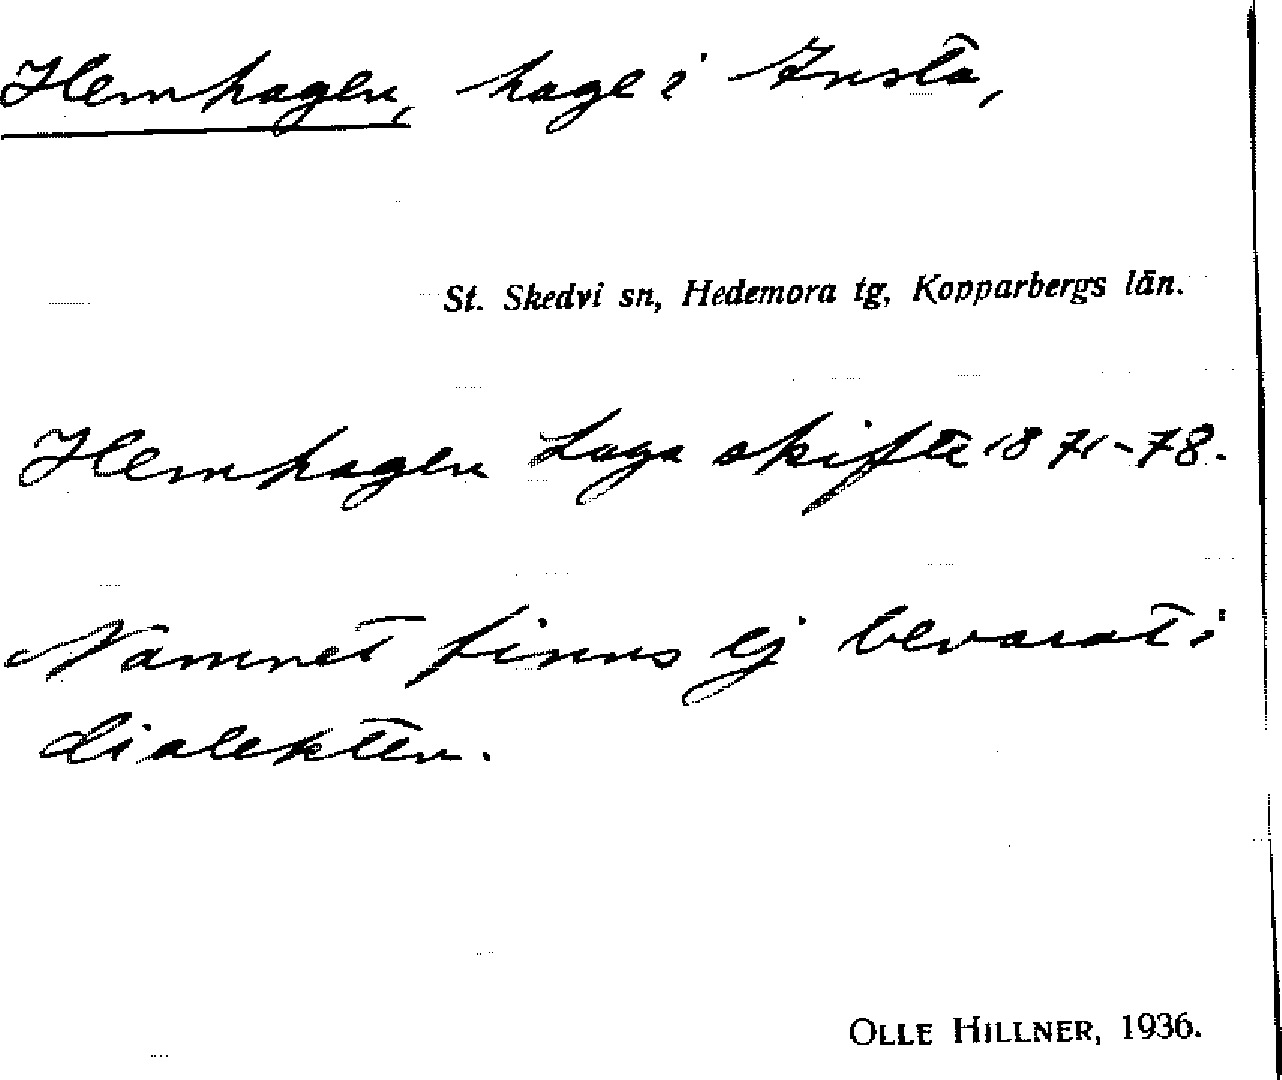 Hemhagen, hage i Knsta,
St. Skedvi sn, Hedemora tg, Kopparbergs län.
Hemhagen Laga skifte 1871-78.
Namnet finns ej bevarat i
dialekten.
OLLE HILLNER, 1936.